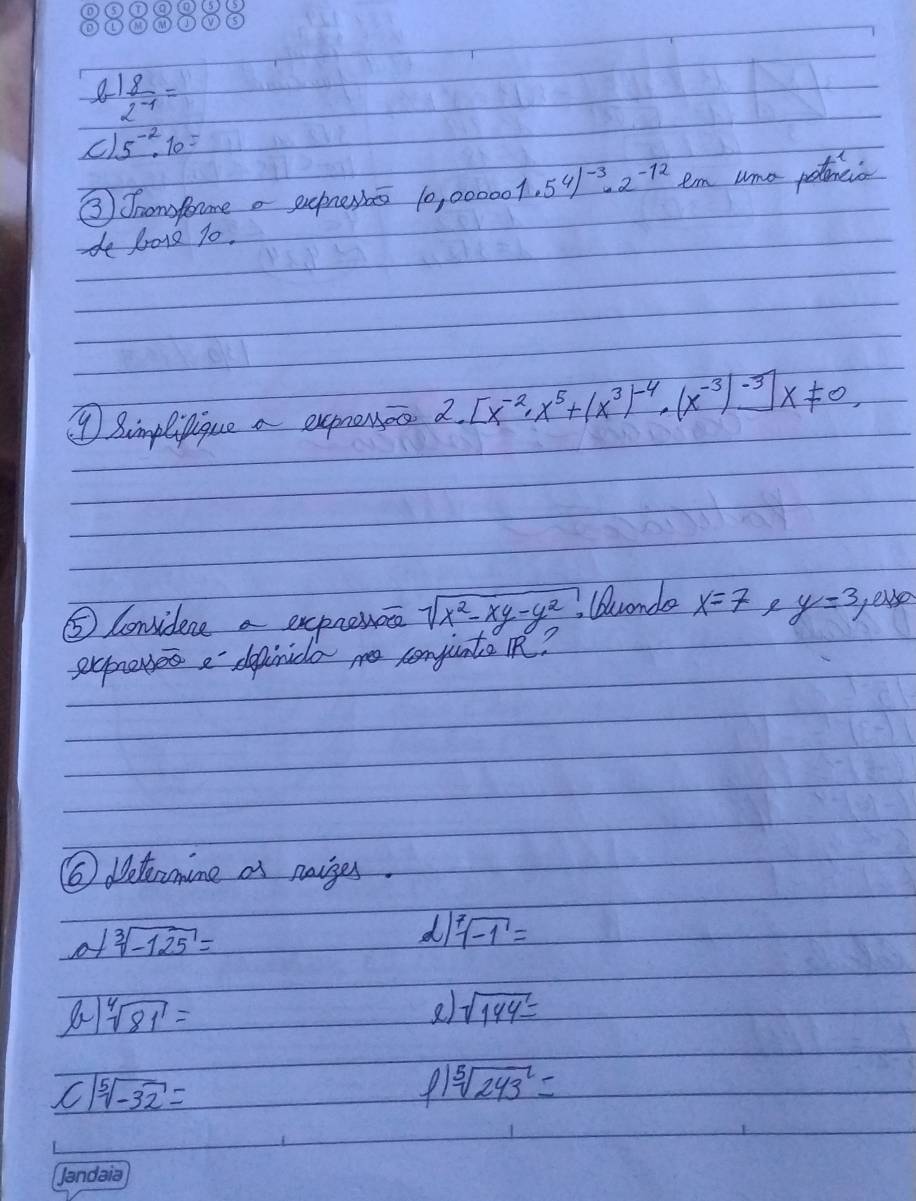 D S T Q Q S S
D L M M J V S
b) 8/2⁻¹ =
c) 5⁻² . 10 =
③ Transforme a expressão (0,000001 . 5⁴)⁻³ . 2⁻¹² em uma potência
de base 10.
④ Simplifique a expressão 2 . [x⁻² . x⁵ + (x³)⁻⁴ . (x⁻³)⁻³] x ≠ 0.
⑤ Considere a expressão √(x² - xy - y²). Quando x = 7 e y = 3, essa
expressão é definida no conjunto ℝ?
⑥ Determine as raizes.
a) ³√-125 = d) ⁷√-1 =
b) ⁴√81 = e) √144 =
c) ⁵√-32 = f) ⁵√243 =
Jandaia